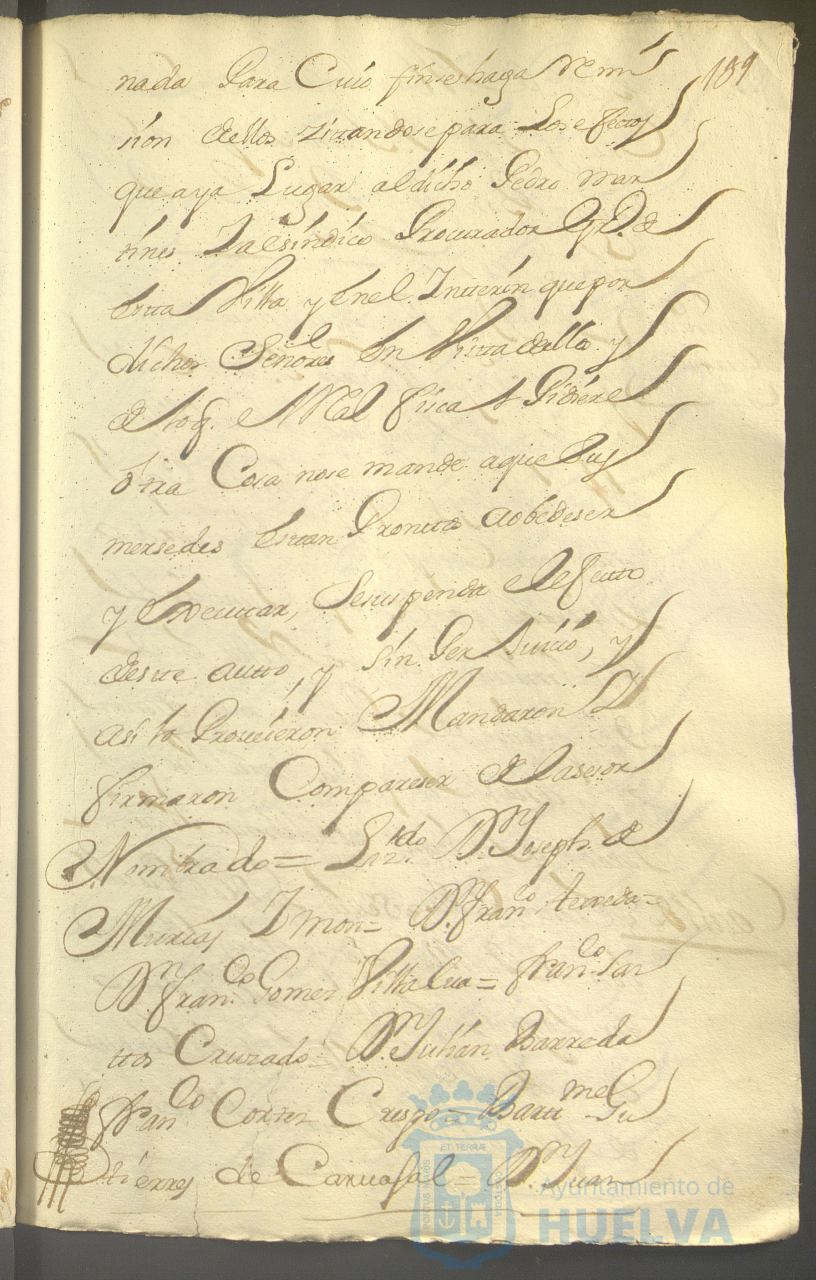 189
nada Para Cuio fin se haga Remi
sion dellos zitandose para Los efectos
que aya Lugar al dicho Pedro Mar
tines Y al sindico Procurador
esta Villa y en el Interin que por
dichos Señores en Vista dello y
el Fiscal Pidiere
otra Cosa no se mande a que sus
mersedes estan Prontos a obedeser
y executar, se suspenda el efecto
deste auto, y sin Perjuicio, y
asi lo Proveieron Mandaron Y
firmaron Con pareser del asesor
Nombrado = Lizdo Dn Joseph de
Murcia Ymon = Dn Franco
Dn Franco Gomez Villalua = Franco San
ttos Cruzado = Dn Julian Barreda
Franco Cortes Crespo = Bartme Gu
tierres de Caruajal = Dn Juan
ET TERRÆ
Ayuntamiento de
HUELVA